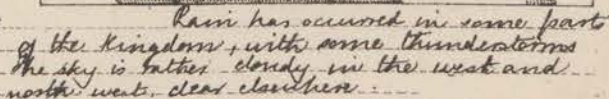 Rain has occurred in some parts
of the Kingdom, with some thunderstorms
The sky is rather cloudy in the west and
north west, clear elsewhere.